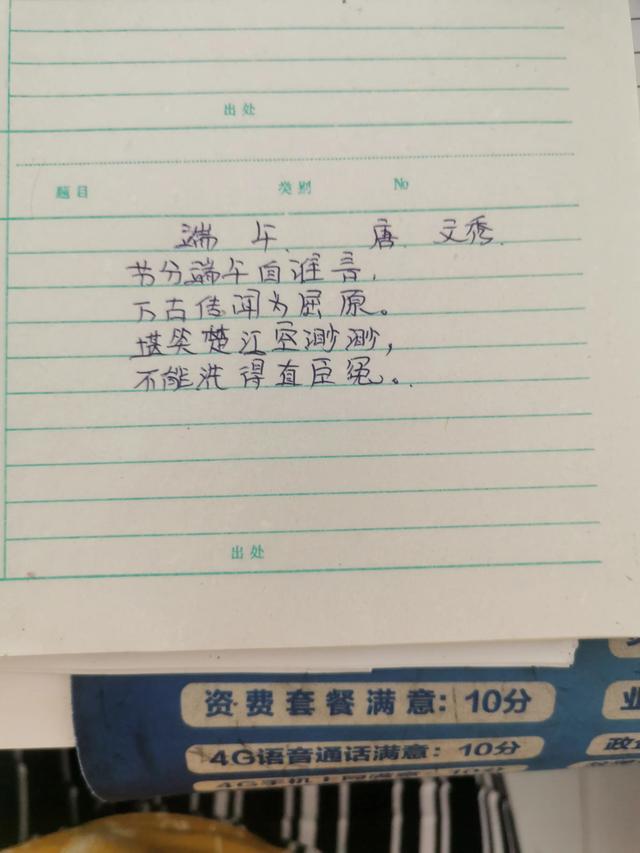 出处
题目 类别 No
端午. 唐. 文秀.
节分端午自谁言,
万古传闻为屈原。
堪笑楚江空渺渺,
不能洗得直臣冤。.
出处
资费套餐满意: 10分
4G语音通话满意: 10分
4G手机上网满意: 10分
业
政企